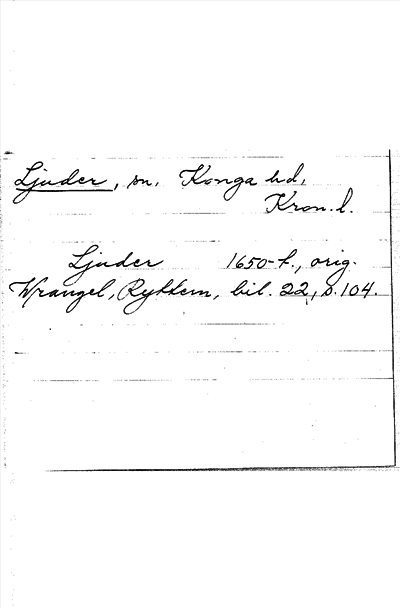 Ljuder, sn, Konga hd,
Kron. l.
Ljuder 1650-t., orig.
Wrangel, Ryttern, bil. 22, s. 104.